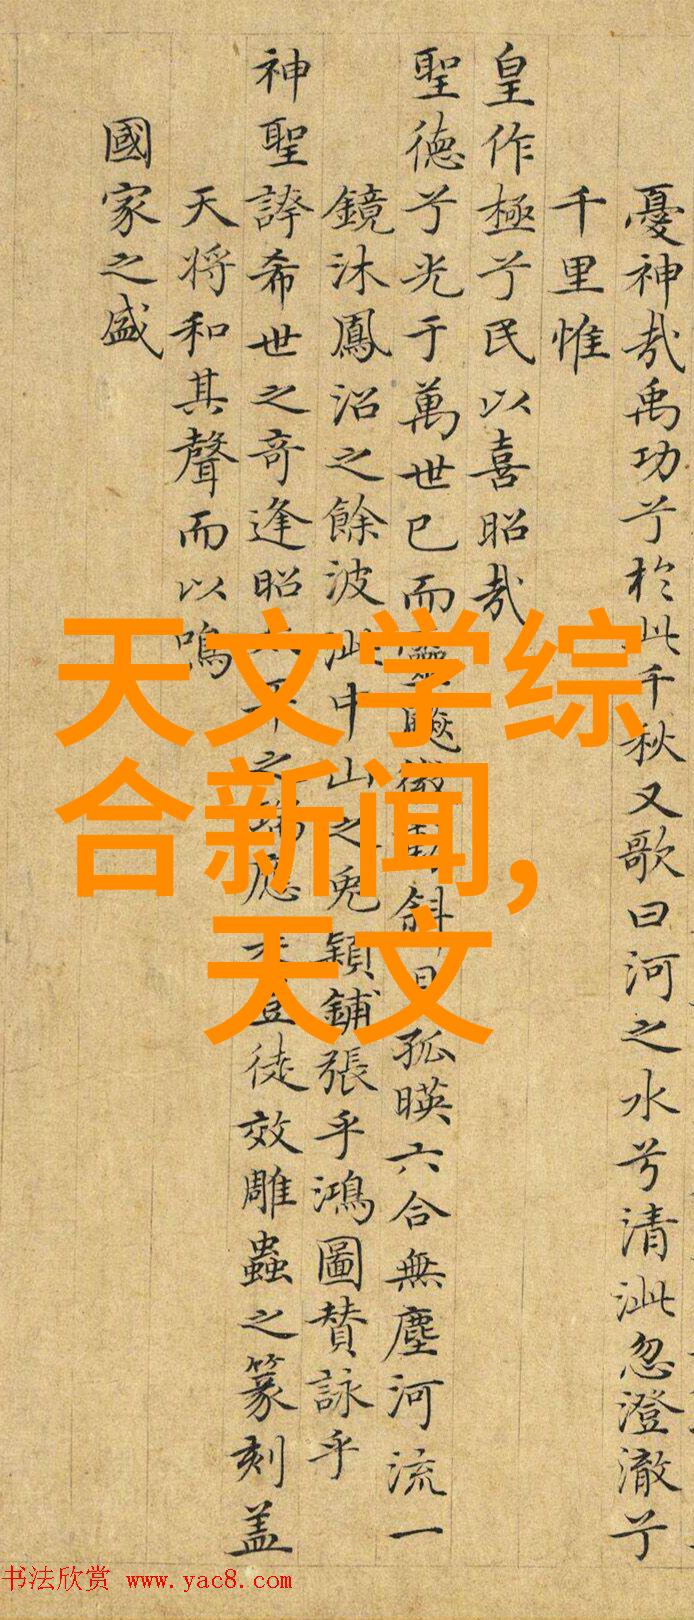 憂神哉禹功兮於此千秋又歌曰河之水兮清泚忽澄澈兮
千里惟
皇作極兮民以喜昭哉
聖德兮光于萬世已而靈飈微動斜日孤暎六合無塵河流一
鏡沐鳳沼之餘波泚中山之兔穎鋪張乎鴻圖贊詠乎
神聖誇希世之奇逢昭之應豈徒效雕蟲之篆刻蓋
天将和其聲而以鳴
國家之盛
天文学综
合新闻,
天文
书法欣赏 www.yac8.com